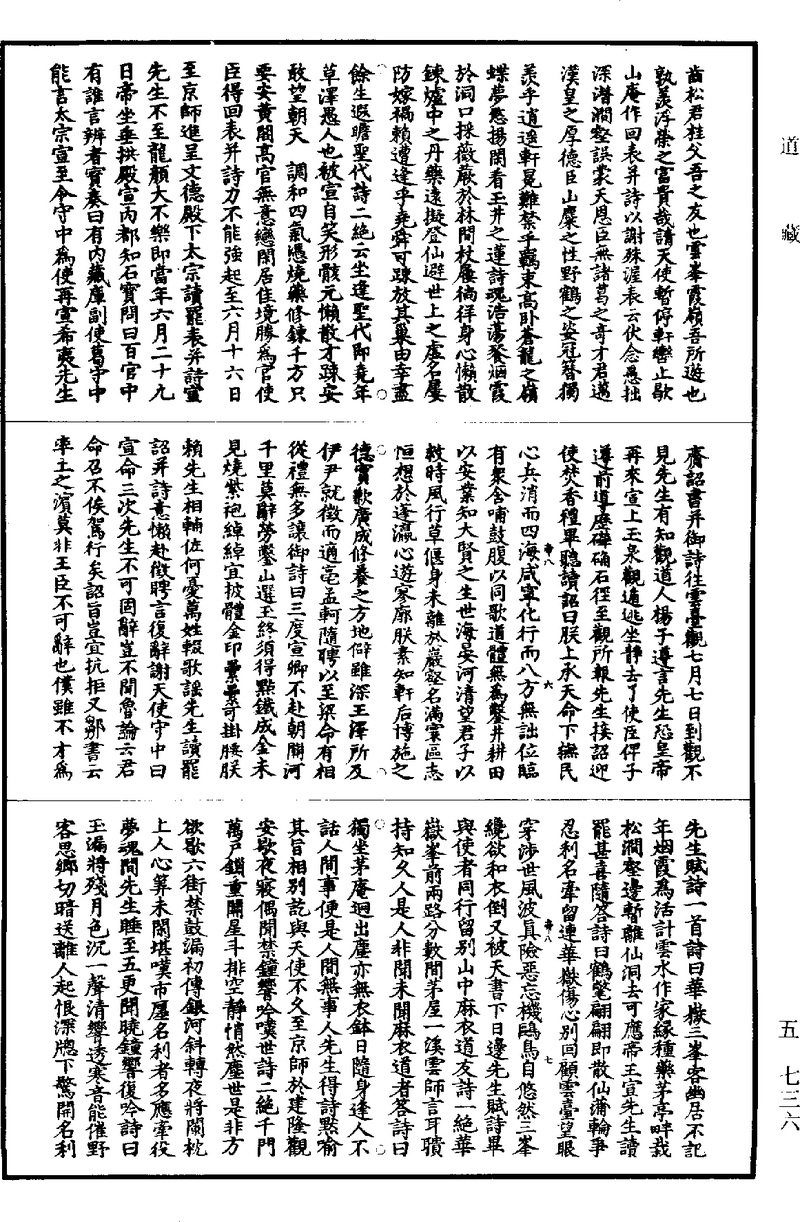 道藏
五 七三六
齒松君桂父吾之友也雲峯霞嶺吾所遊也
孰羨浮榮之富貴哉請天使暫停軒轡止歇
山庵作回表并詩以謝殊渥表云伏念愚拙
深潛澗壑誤蒙天恩臣無諸葛之奇才君邁
漢皇之厚德臣山麋之性野鶴之姿冠簪獨
羨乎逍遙軒冕難禁乎羈束高卧蒼龍之嶺
蝶夢悠揚閑看玉井之蓮詩魂浩蕩餐烟霞
於洞口採薇蕨於林間杖屨徜徉身心懶散
鍊爐中之丹藥遠擬登仙避世上之虛名屢
防嫁禍賴遭逢乎堯舜可踈放其巢由幸盡
餘生遐瞻聖代詩二絶云坐逢聖代即堯年
草澤愚人也被宣自笑形骸元懶散才踈安
敢望朝天 調和四氣憑燒藥修鍊千方只
要安黄閣高官無意戀閑居佳境勝為官使
臣得回表并詩刀不能強起至六月十六日
至京師進呈文德殿下太宗讀罷表并詩宣
先生不至龍顏大不樂即當年六月二十九
日帝坐垂拱殿宣內都知石寶問曰百官中
有誰言辨者寶奏曰有內藏庫副使葛守中
能言太宗宣至令守中為使再宣希夷先生
齎詔書并御詩往雲臺觀七月七日到觀不
見先生有知觀道人楊子遵言先生恐皇帝
再來宣上玉泉觀逋逃坐靜去了使臣俾子
遵前導歷磽确石徑至觀所報先生接詔迎
使焚香禮畢聽讀詔曰朕上承天命下撫民
心兵消而四海咸寧化行而八方無詘位臨
有衆含哺鼓腹以同歌道體無為鑿井耕田
以安業知大賢之生世海晏河清望君子以
救時風行草偃身未離於巖壑名滿寰區志
恒想於蓬瀛心遊寥廓朕素知軒后博施之
德實歎廣成修養之方地僻雖深王澤所及
伊尹就徵而適亳孟軻隨聘以至梁命有相
從禮無多讓御詩曰三度宣卿不赴朝關河
千里莫辭勞鑿山選玉終須得點鐵成金未
見燒紫袍綽綽宜披體金印纍纍可掛腰朕
賴先生相輔佐何憂萬姓輟歌謠先生讀罷
詔并詩意懶赴徵聘言復辭謝天使守中曰
宣命三次先生不可固辭豈不聞魯論云君
命召不俟駕行矣詔旨豈宜抗拒又鄒書云
率土之濱莫非王臣不可辭也僕雖不才為
先生賦詩一首詩曰華嶽三峯客幽居不記
年烟霞為活計雲水作家緣種藥茅亭畔栽
松澗壑邊暫離仙洞去可應帝王宣先生讀
罷甚喜隨答詩曰鶴氅翩翩即散仙蒲輪爭
忍利名牽留連華嶽傷心別回顧雲臺望眼
穿涉世風波真險惡忘機鷗鳥自悠然三峯
纔欲和衣倒又被天書下日邊先生賦詩畢
與使者同行留別山中麻衣道友詩一絶華
嶽峯前兩路分數間茅屋一溪雲師言耳聵
持知久人是人非聞未聞麻衣道者答詩曰
獨坐茅庵迥出塵亦無衣鉢日隨身逢人不
話人間事便是人間無事人先生得詩默喻
其旨相別訖與天使不久至京師於建隆觀
安歇夜寢偶聞禁鐘響吟嘆世詩二絶千門
萬戶鎖重關星斗排空靜悄然塵世是非方
欲歇六街禁鼓漏初傳銀河斜轉夜將闌枕
上人心算未閑堪嘆市廛名利者多應牽役
夢魂間先生睡至五更聞曉鐘響復吟詩曰
玉漏將殘月色沉一聲清響透寒音能催野
客思鄉切暗送離人起恨深牕下驚開名利